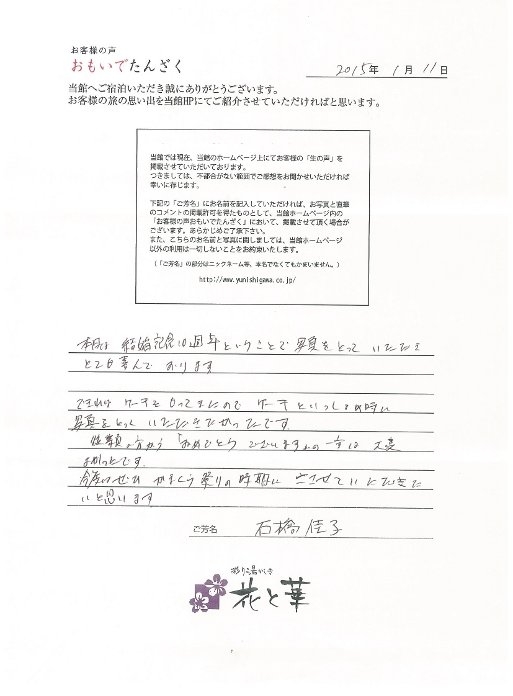 お客様の声
おもいでたんざく
2015年 1月 11日
当館へご宿泊いただき誠にありがとうございます。
お客様の旅の思い出を当館HPにてご紹介させていただければと思います。
当館では現在、当館のホームページ上にてお客様の「生の声」を
掲載させていただいております。
つきましては、不都合がない範囲でご感想をお聞かせいただければ
幸いに存じます。
下記の「ご芳名」にお名前を記入していただければ、お写真と直筆
のコメントの掲載許可を得たものとして、当館ホームページ内の
「お客様の声おもいでたんざく」において、掲載させて頂く場合が
ございます。あらかじめご了承下さい。
また、こちらのお名前と写真に関しましては、当館ホームページ
以外の利用は一切しないことをお約束いたします。
(「ご芳名」の部分はニックネーム等、本名でなくてもかまいません。)
http://www.yunishigawa.co.jp/
本日は 結婚記念10周年ということで 写真をとって いただき
とても喜んで おります
できれば ケーキももってきたので ケーキ といっしょの時に
写真をとって いただきたかったです
従業員の方から 「おめでとう ございます」の一言は 大変
よかったです.
今度はぜひ かまくら祭りの時期に させていただきた
いと思います
ご芳名 石橋 佳子
彩り湯かしき
花と華